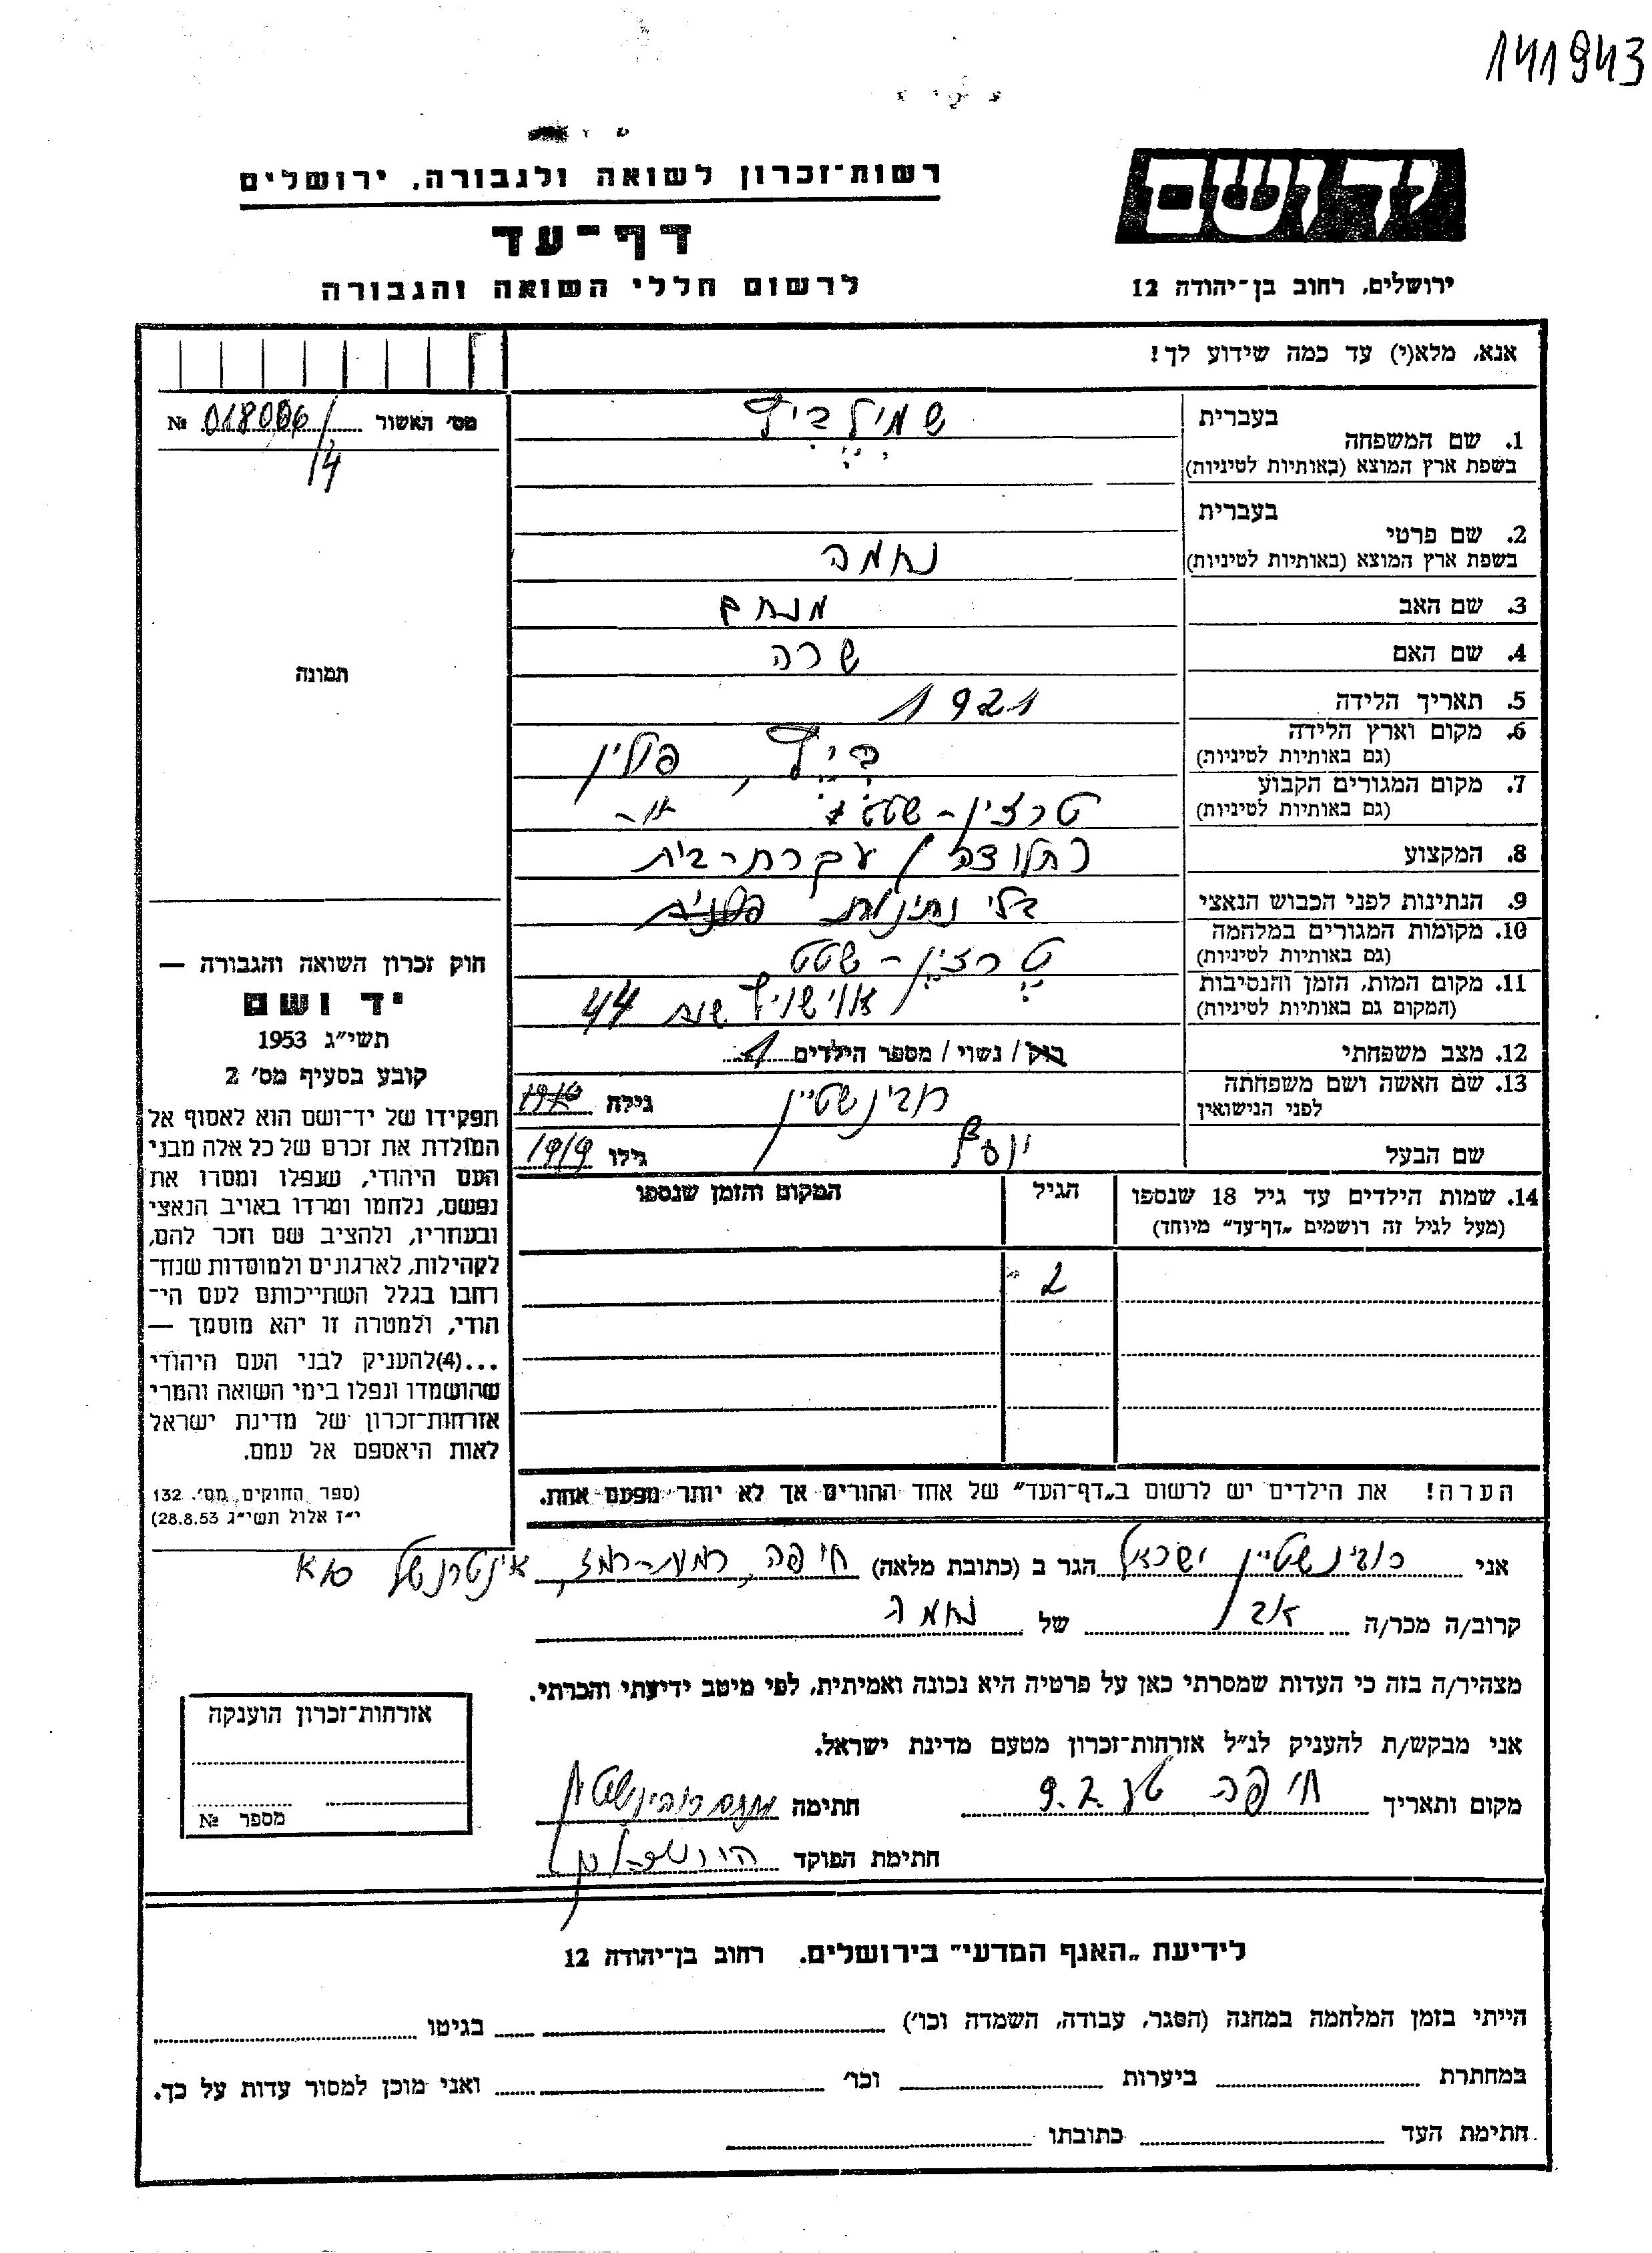 141943
יד ושם
רשות־זכרון לשואה ולגבורה, ירושלים
דף־עד
לרשום חללי השואה והגבורה
ירושלים, רחוב בן־יהודה 12
אנא, מלא(י) עד כמה שידוע לך!
מס' האשור № 018006/
14
תמונה
1. שם המשפחה
בעברית
בשפת ארץ המוצא (באותיות לטיניות)
2. שם פרטי
בעברית
בשפת ארץ המוצא (באותיות לטיניות) נחמה
3. שם האב מנחם
4. שם האם שרה
5. תאריך הלידה 1921
6. מקום וארץ הלידה
(גם באותיות לטיניות) פולין
7. מקום המגורים הקבוע
(גם באותיות לטיניות) טרצין-שטט
8. המקצוע עקרת-בית
9. הנתינות לפני הכבוש הנאצי בלי נתינות
10. מקומות המגורים במלחמה
(גם באותיות לטיניות) טרצין-שטט
11. מקום המות, הזמן והנסיבות
(המקום גם באותיות לטיניות) אושויץ שנת 44
12. מצב משפחתי רוק / נשוי / מספר הילדים 1
13. שם האשה ושם משפחתה
לפני הנישואין רובינשטיין גילה
שם הבעל גילו 1919
14. שמות הילדים עד גיל 18 שנספו
(מעל לגיל זה רושמים „דף־עד" מיוחד)
הגיל
המקום והזמן שנספו
2
הערה! את הילדים יש לרשום ב„דף־העד" של אחד ההורים אך לא יותר מפעם אחת.
חוק זכרון השואה והגבורה —
יד ושם
תשי"ג 1953
קובע בסעיף מס' 2
תפקידו של יד־ושם הוא לאסוף אל
המולדת את זכרם של כל אלה מבני
העם היהודי, שנפלו ומסרו את
נפשם, נלחמו ומרדו באויב הנאצי
ובעוזריו, ולהציב שם וזכר להם,
לקהילות, לארגונים ולמוסדות שנח־
רבו בגלל השתייכותם לעם הי־
הודי, ולמטרה זו יהא מוסמך —
...(4)להעניק לבני העם היהודי
שהושמדו ונפלו בימי השואה והמרי
אזרחות־זכרון של מדינת ישראל
לאות היאספם אל עמם.
(ספר החוקים מס' 132,
י"ז אלול תשי"ג 28.8.53)
אני רובינשטיין ישראל הגר ב (כתובת מלאה) חיפה, רמת-רמז,
קרוב/ה מכר/ה של נחמה
מצהיר/ה בזה כי העדות שמסרתי כאן על פרטיה היא נכונה ואמיתית, לפי מיטב ידיעתי והכרתי.
אני מבקש/ת להעניק לנ"ל אזרחות־זכרון מטעם מדינת ישראל.
מקום ותאריך חיפה 9.2 חתימה
חתימת הפוקד
אזרחות־זכרון הוענקה
מספר №
לידיעת „האגף המדעי" בירושלים. רחוב בן־יהודה 12
הייתי בזמן המלחמה במחנה (הסגר, עבודה, השמדה וכו') בגיטו
במחתרת ביערות וכו' ואני מוכן למסור עדות על כך.
חתימת העד כתובתו